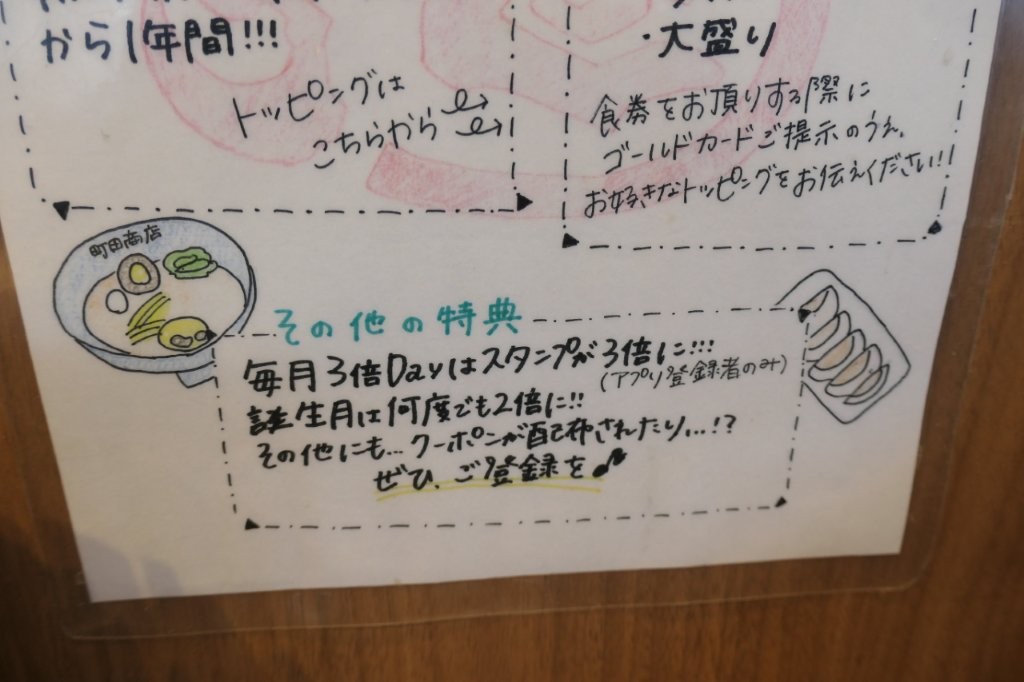 から1年間!!!
トッピングは
こちらから
・大盛り
食券をお頂りする際に
ゴールドカードご提示のうえ、
お好きなトッピングをお伝えください!!
町田商店
その他の特典
毎月3倍Dayはスタンプが3倍に!!!
(アプリ登録者のみ)
誕生月は何度でも2倍に!!
その他にも…クーポンが配布されたり…!?
ぜひ、ご登録を♪